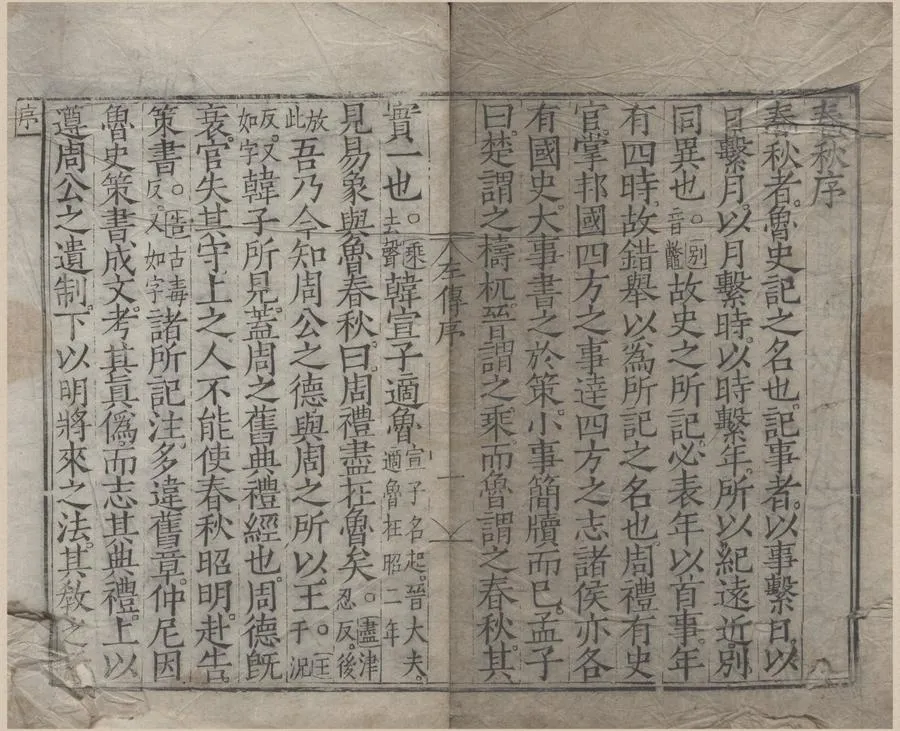 春秋序
春秋者。魯史記之名也。記事者。以事繫日。以
日繫月。以月繫時。以時繫年。所以紀遠近。別
同異也。○別音鼈故史之所記。必表年以首事。年
有四時。故錯舉以爲所記之名也。周禮有史
官。掌邦國四方之事。達四方之志。諸侯亦各
有國史。大事書之於策。小事簡牘而已。孟子
曰。楚謂之檮杌。晉謂之乘。而魯謂之春秋。其
左傳序 一
實一也。○乘去聲韓宣子適魯宣子名起。晉大夫。適魯在昭二年
見易象與魯春秋。曰。周禮盡在魯矣。○盡津忍反。後
放此吾乃今知周公之德與周之所以王。○王于況
反。又如字韓子所見。蓋周之舊典禮經也。周德既
衰。官失其守。上之人不能使春秋昭明。赴告
策書。○告古毒反。又如字諸所記注。多違舊章。仲尼因
魯史策書成文。考其眞僞。而志其典禮。上以
遵周公之遺制。下以明將來之法。其教之
序